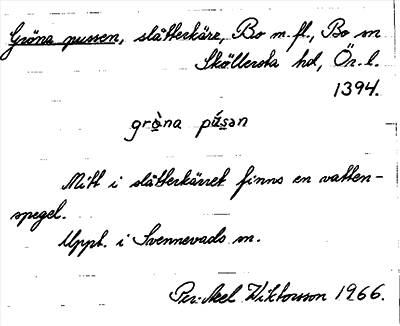 Gröna pussen, slåtterkärr, Bo m. fl., Bo sn
Sköllersta hd, Ör. l.
1394.
grὼna pú̄sən
Mitt i slåtterkärret finns en vatten-
spegel.
Uppt. i Svennevads sn.
Per-Axel Wiktorsson 1966.